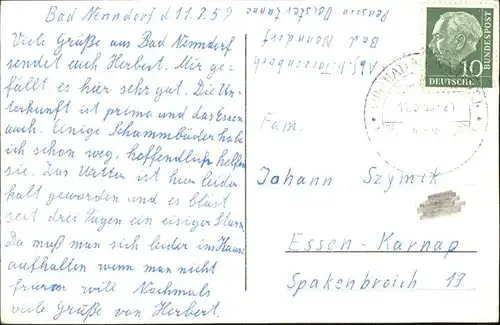 Bad Nenndorf d 11.3.59
Viele Grüße aus Bad Nenndorf
sendet euch Herbert. Mir ge-
fällt es hier sehr gut. Die Un-
terkunft ist prima und das Essen
auch. Einige Schammbäder habe
ich schon weg, hoffendlich helfen
sie. Das Wetter ist hier leider
kalt geworden und es bläst
seit drei Tagen ein eisiger Sturm.
Da muß man sich leider im Hause
aufhalten wenn man nicht
frieren will Nochmals
viele Grüße von Herbert.
Abs. H.
Bad Nenndorf
Pension Deister
DEUTSCHE
BUNDESPOST
10
Fam.
Johann Szymik
Essen-Karnap
Spakenbroich 13